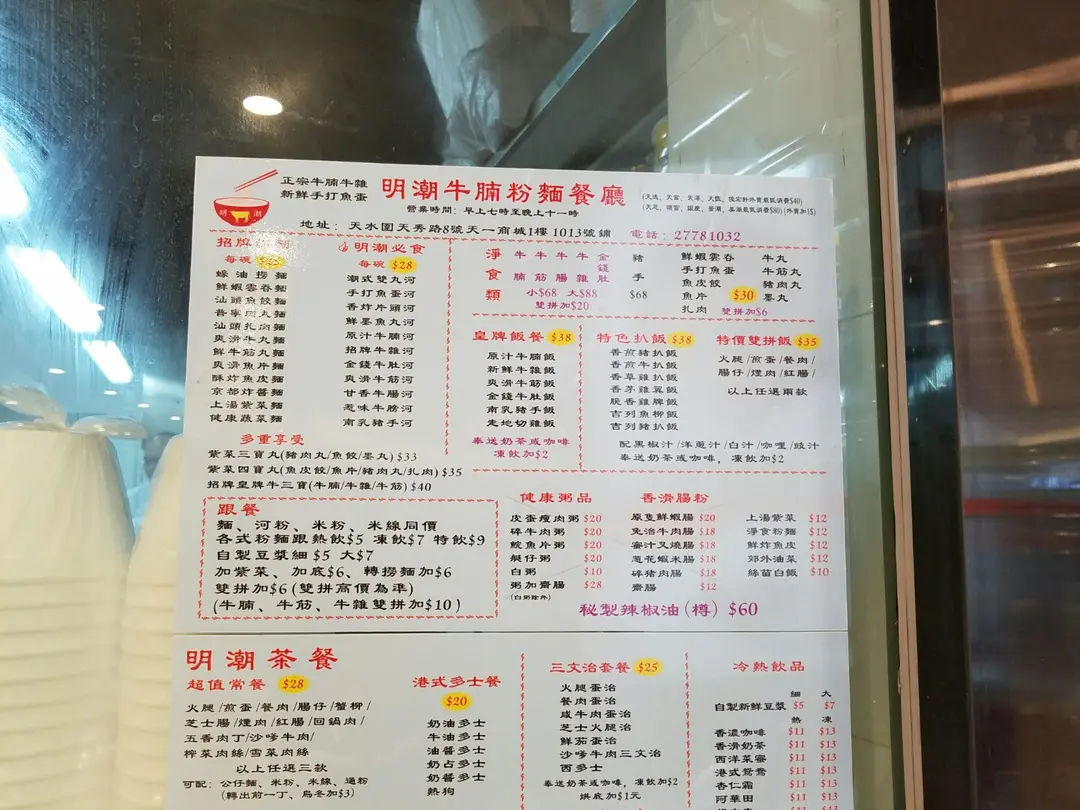 正宗牛腩牛雜
新鮮手打魚蛋
明潮牛腩粉麵餐廳
營業時間：早上七時至晚上十一時
地址：天水圍天秀路8號天一商城1樓 1013號鋪 電話：27781032
明 潮
招牌
每碗
蠔油撈麵
鮮蝦雲吞麵
汕頭魚餃麵
普寧肉丸麵
汕頭扎肉麵
爽滑牛丸麵
鮮牛筋丸麵
爽滑魚片麵
酥炸魚皮麵
京都炸醬麵
上湯紫菜麵
健康蔬菜麵
明潮必食
每碗 $28
潮式雙丸河
手打魚蛋河
香炸片頭河
鮮墨魚丸河
原汁牛腩河
招牌牛雜河
金錢牛肚河
爽滑牛筋河
甘香牛腸河
惹味牛膀河
南乳豬手河
多重享受
紫菜三寶丸(豬肉丸/魚餃/墨丸) $33
紫菜四寶丸(魚皮餃/魚片/豬肉丸/扎肉) $35
招牌皇牌牛三寶(牛腩/牛雜/牛筋) $40
淨食類
牛腩 牛筋 牛腸 牛雜 金錢肚
小$68 大$88
雙拼加$20
豬手
$68
鮮蝦雲吞 牛丸
手打魚蛋 牛筋丸
魚皮餃 豬肉丸
魚片 $30 墨丸
扎肉 雙拼加$6
皇牌飯餐 $38
原汁牛腩飯
新鮮牛雜飯
爽滑牛筋飯
金錢牛肚飯
南乳豬手飯
走地切雞飯
奉送奶茶或咖啡
凍飲加$2
特色扒飯 $38
香煎豬扒飯
香煎牛扒飯
香草雞扒飯
香茅雞翼飯
脆香雞髀飯
吉列魚柳飯
吉列豬扒飯
特價雙拼飯 $35
火腿/煎蛋/餐肉/
腸仔/煙肉/紅腸/
以上任選兩款
配黑椒汁/洋蔥汁/白汁/咖喱/豉汁
奉送奶茶或咖啡，凍飲加$2
跟餐
麵、河粉、米粉、米線同價
各式粉麵跟熱飲$5 凍飲$7 特飲$9
自製豆漿細 $5 大$7
加紫菜、加底$6、轉撈麵加$6
雙拼加$6 (雙拼高價為準)
(牛腩、牛筋、牛雜雙拼加$10)
健康粥品
皮蛋瘦肉粥 $20
碎牛肉粥 $20
鯇魚片粥 $20
艇仔粥 $20
白粥 $10
粥加齋腸 $28
(白粥除外)
香滑腸粉
原隻鮮蝦腸 $20
免治牛肉腸 $18
蜜汁叉燒腸 $18
蔥花蝦米腸 $18
碎豬肉腸 $18
齋腸 $12
上湯紫菜 $12
淨食粉麵 $12
鮮炸魚皮 $12
郊外油菜 $12
絲苗白飯 $10
秘製辣椒油(樽) $60
明潮茶餐
超值常餐 $28
火腿/煎蛋/餐肉/腸仔/蟹柳/
芝士腸/煙肉/紅腸/回鍋肉/
五香肉丁/沙嗲牛肉/
榨菜肉絲/雪菜肉絲
以上任選三款
可配：公仔麵、米粉、米線、通粉
(轉出前一丁、烏冬加$3)
港式多士餐
$20
奶油多士
牛油多士
油醬多士
奶占多士
奶醬多士
熱狗
三文治套餐 $25
火腿蛋治
餐肉蛋治
咸牛肉蛋治
芝士火腿治
鮮茄蛋治
沙嗲牛肉三文治
西多士
奉送奶茶或咖啡，凍飲加$2
烘底加$1元
冷熱飲品
細 大
自製新鮮豆漿 $5 $7
熱 凍
香濃咖啡 $11 $13
香滑奶茶 $11 $13
西洋菜蜜 $11 $13
港式鴛鴦 $11 $13
杏仁霜 $11 $13
阿華田 $11 $13